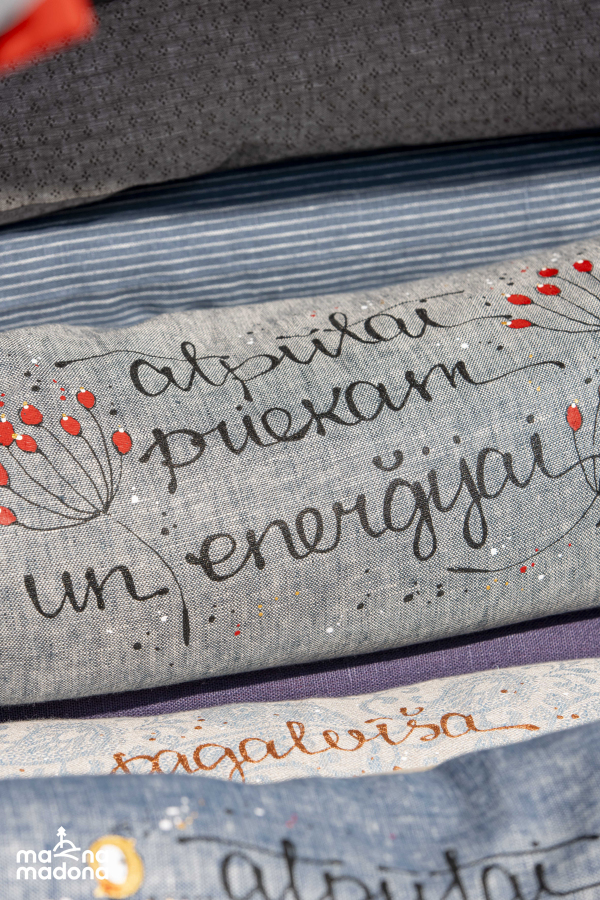 atpūtai
priekam
un enerģijai
pagalvīša
atpūtai
mana
madona